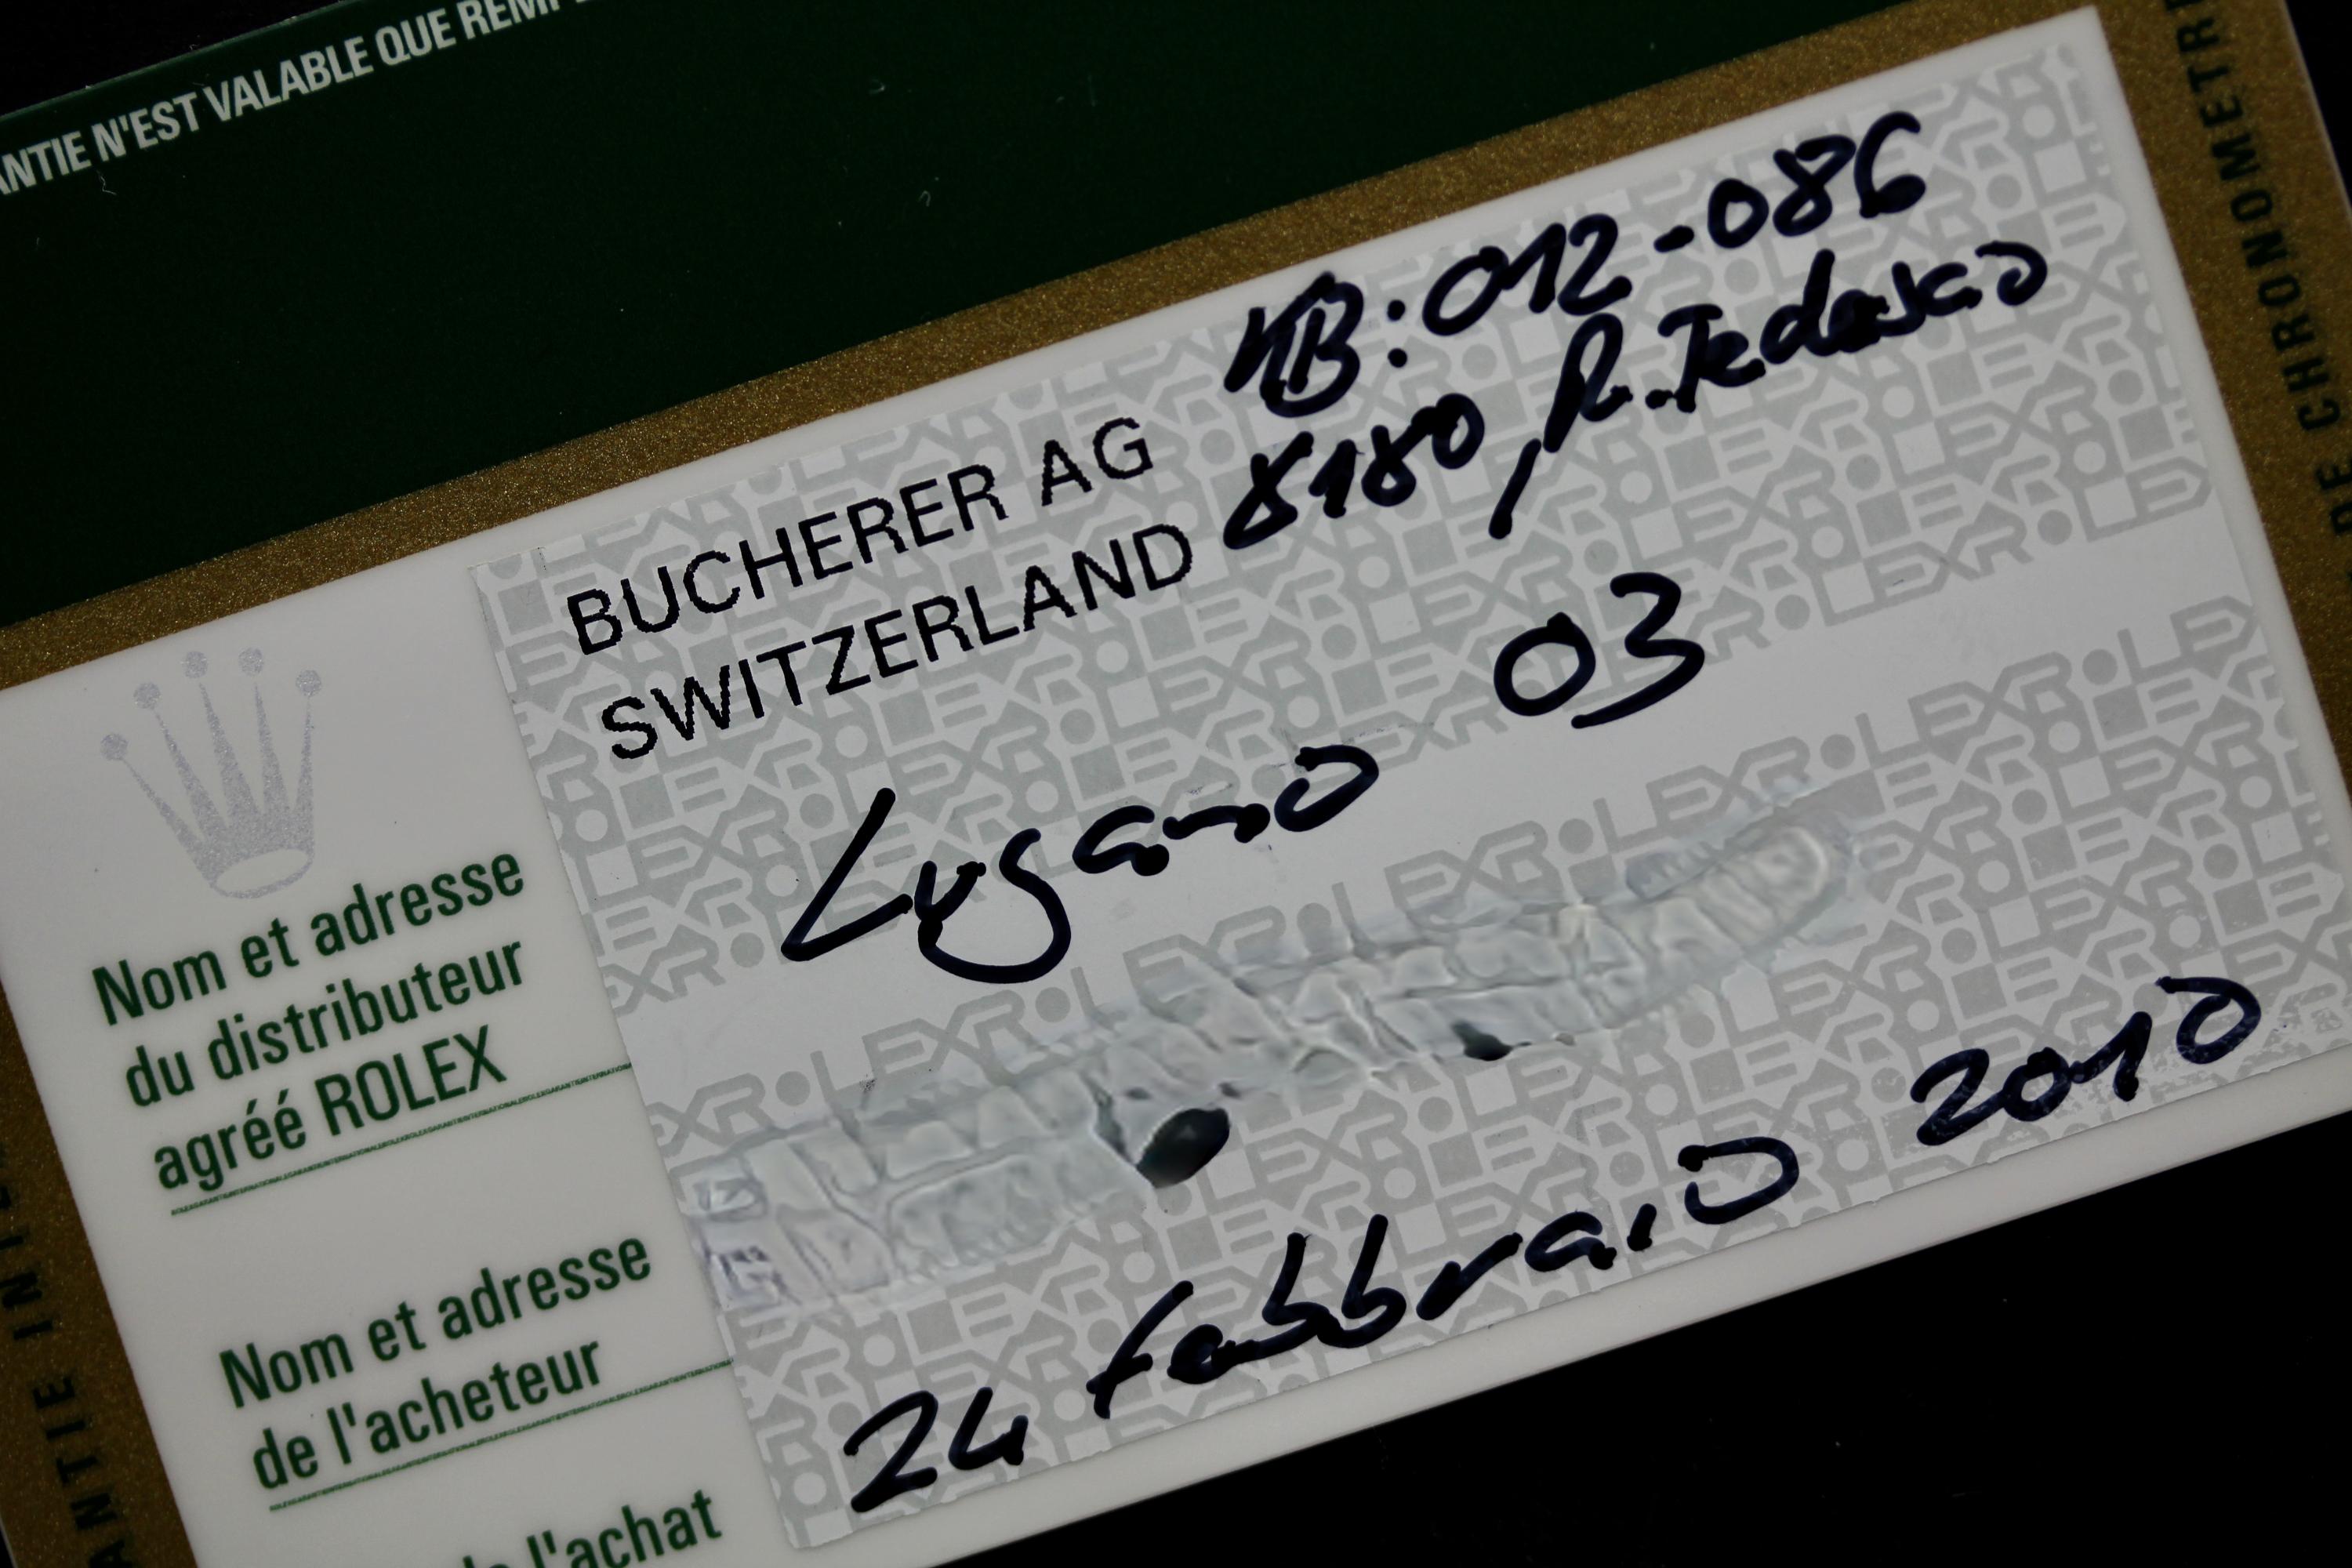 ANTIE N'EST VALABLE QUE REMP
BUCHERER AG
SWITZERLAND
VB: 012-086
8180, R. Tedesco
Lugano 03
Nom et adresse
du distributeur
agréé ROLEX
Nom et adresse
de l'acheteur
24 febbraio 2010
de l'achat
DE CHRONOMETRE
ANTIE INTE